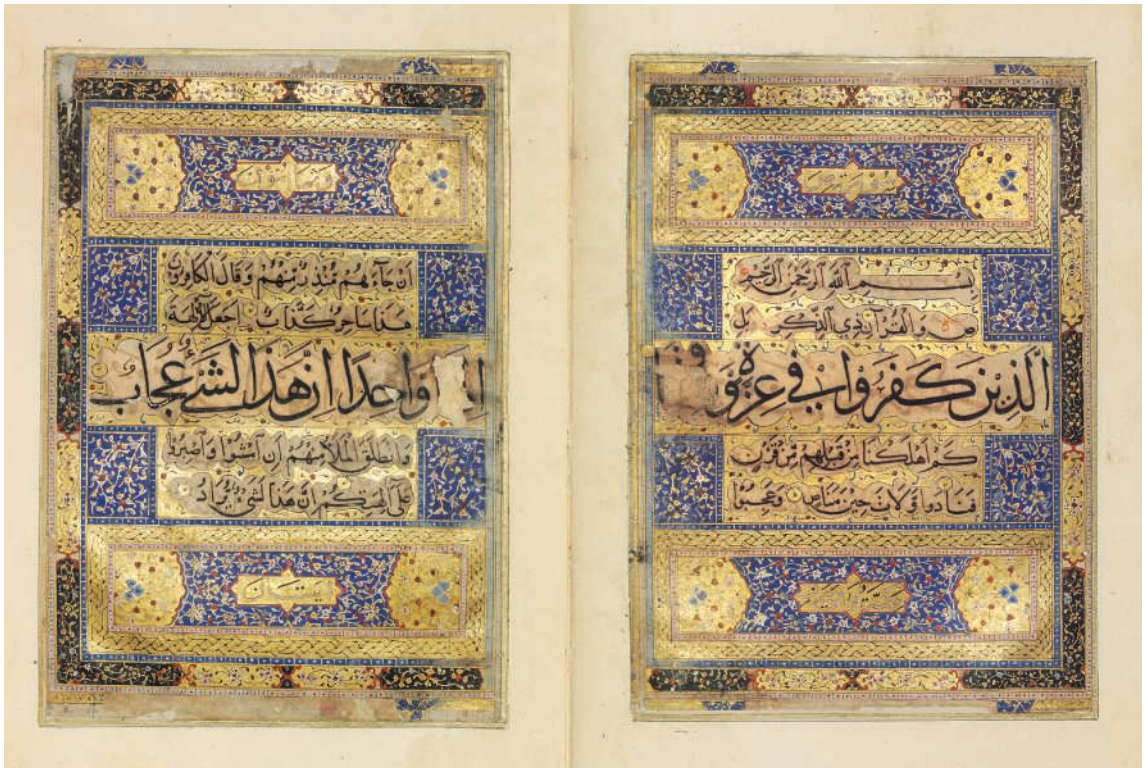 بِسْمِ اللَّهِ الرَّحْمَنِ الرَّحِيمِ
ص وَالْقُرْآنِ ذِي الذِّكْرِ بَلِ
الَّذِينَ كَفَرُوا فِي عِزَّةٍ وَ
كَمْ أَهْلَكْنَا مِنْ قَبْلِهِمْ مِنْ قَرْنٍ
فَنَادَوْا وَلَاتَ حِينَ مَنَاصٍ وَعَجِبُوا
أَنْ جَاءَهُمْ مُنْذِرٌ مِنْهُمْ وَقَالَ الْكَافِرُونَ
هَذَا سَاحِرٌ كَذَّابٌ أَجَعَلَ الْآلِهَةَ
وَاحِدًا إِنَّ هَذَا لَشَيْءٌ عُجَابٌ
وَانْطَلَقَ الْمَلَأُ مِنْهُمْ أَنِ امْشُوا وَاصْبِرُوا
عَلَى آلِهَتِكُمْ إِنَّ هَذَا لَشَيْءٌ يُرَادُ